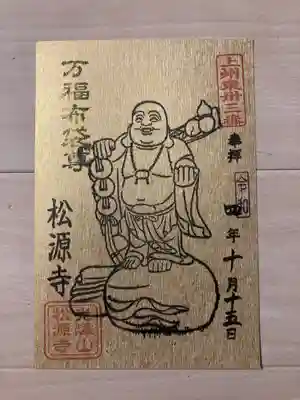 上州東卅三番
奉拝
令和四年十月十五日
万福布袋尊
松源寺
山
松源寺